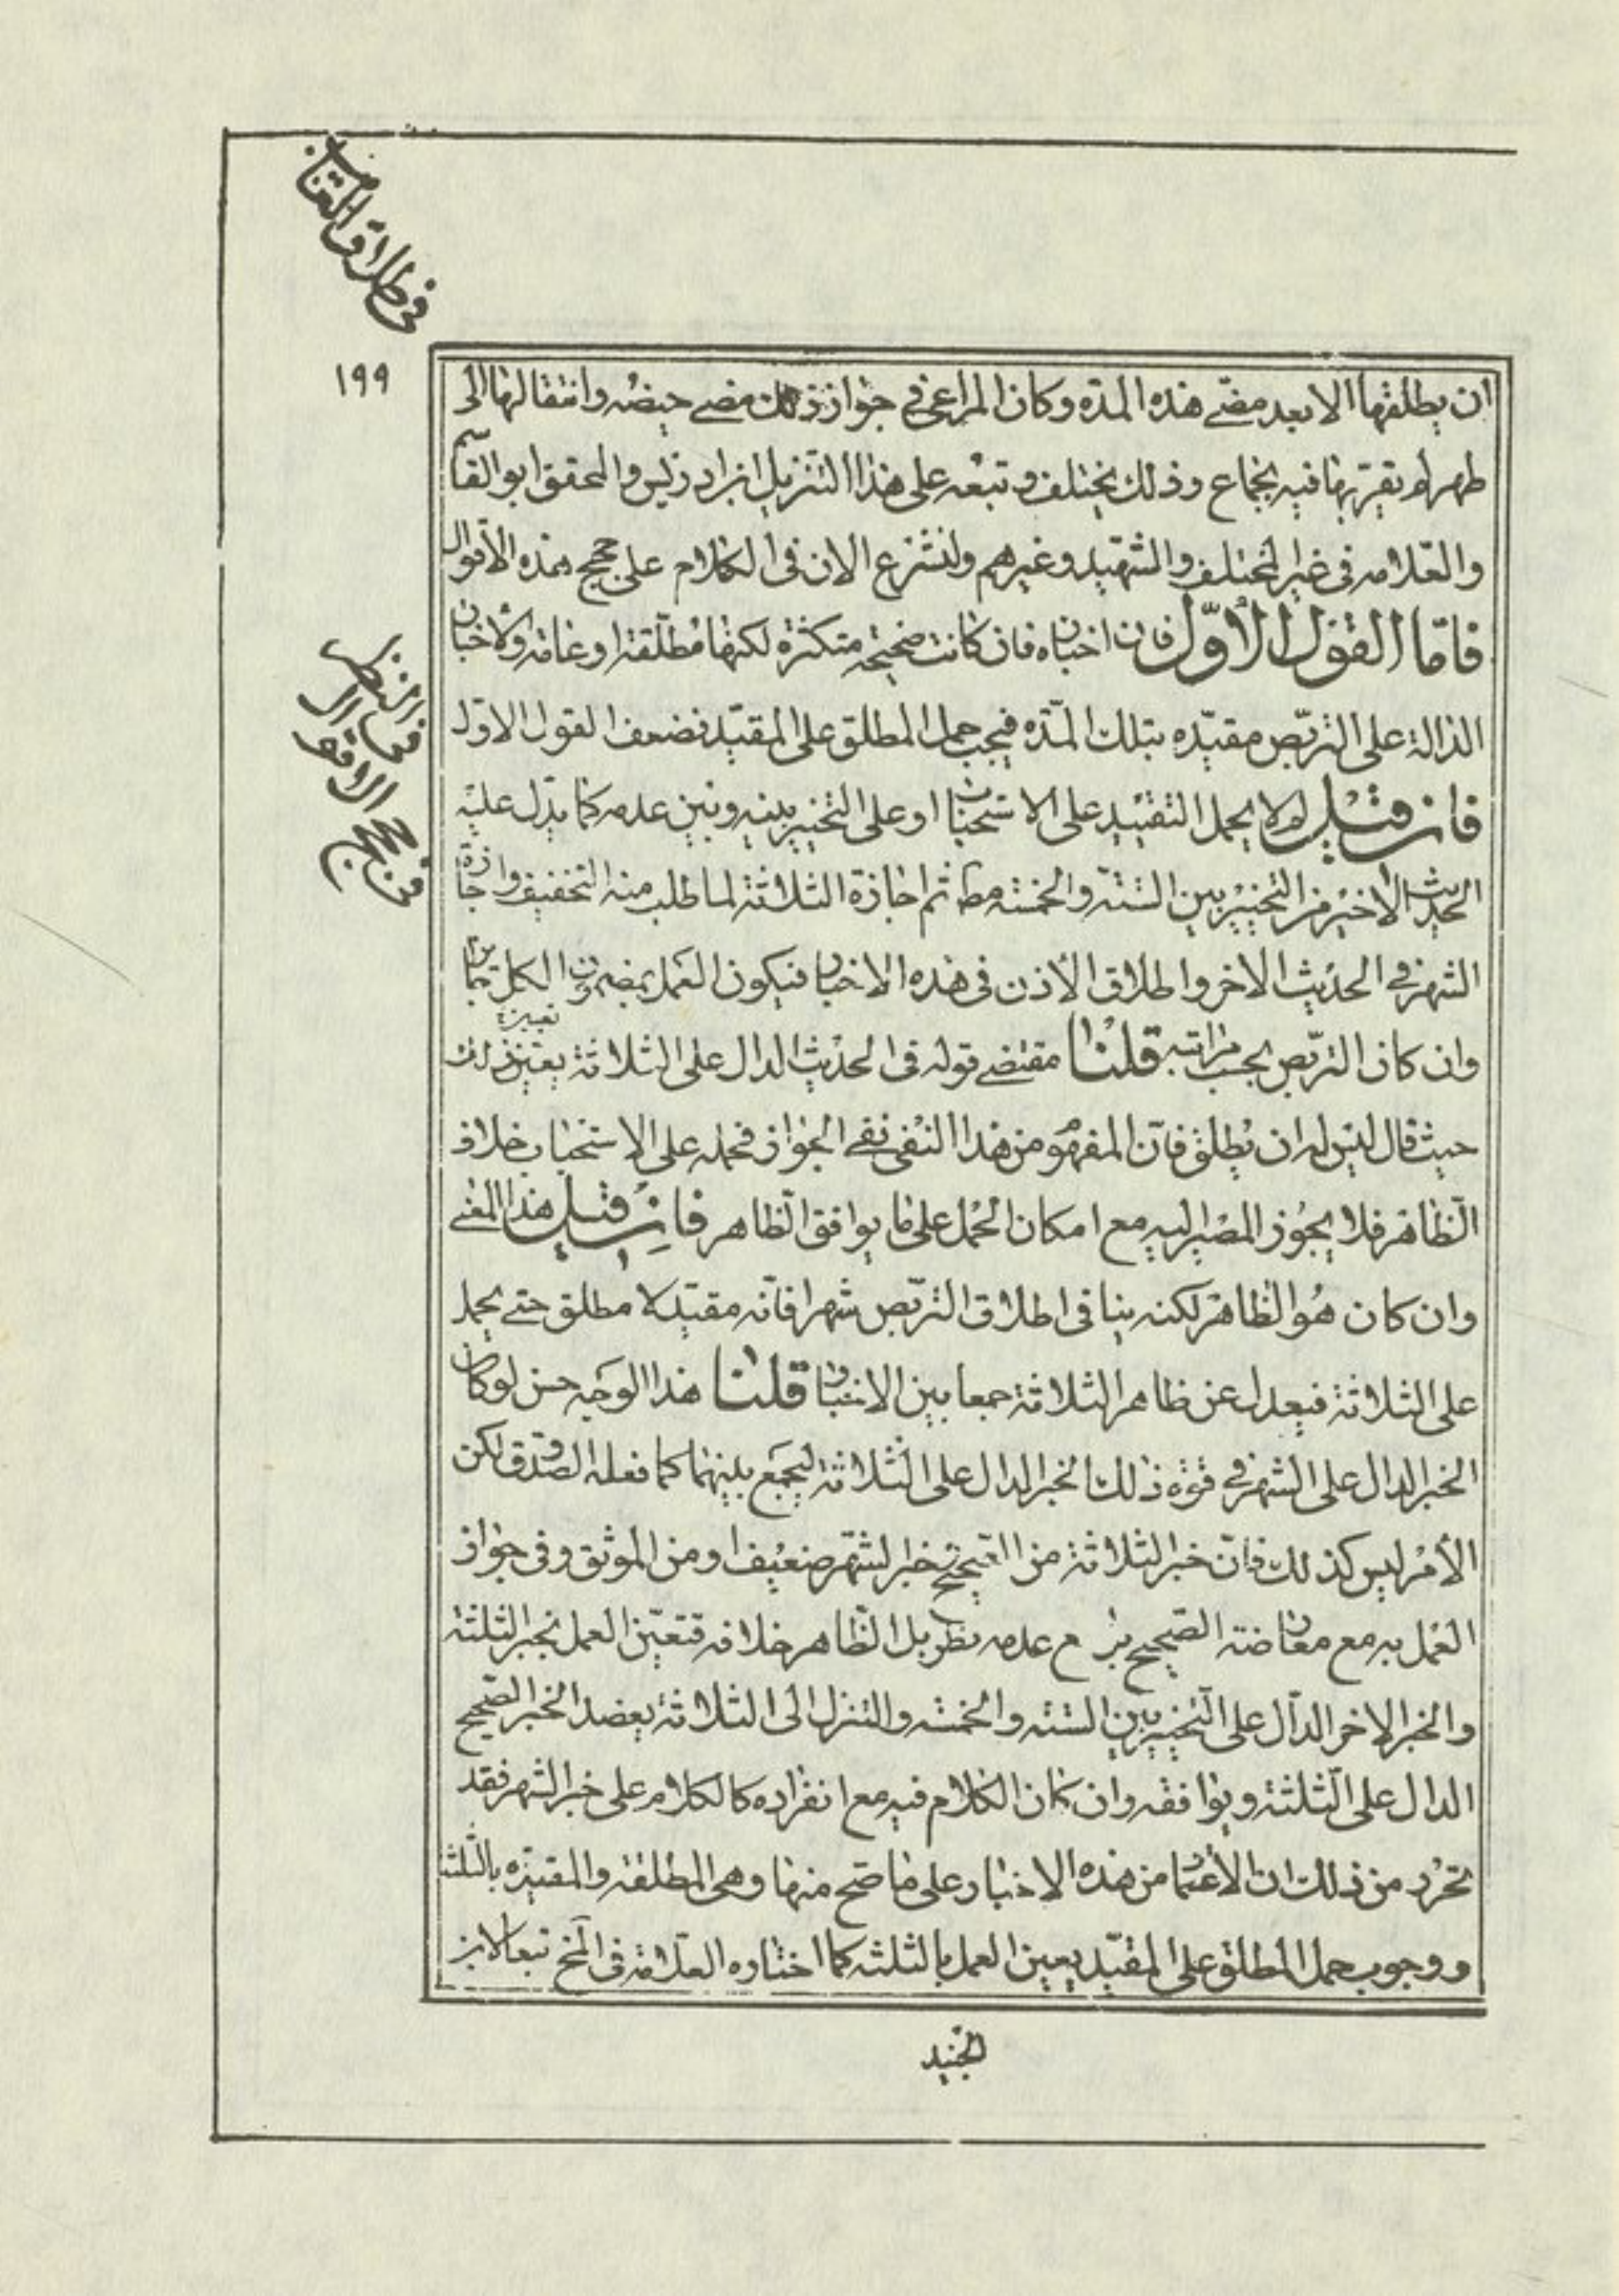 في طلاق الغائب
١٩٩
ان يطلقها الا بعد مضى هذه المدة وكان المراعى في جواز ذلك مضى حيضه وانتقالها الى
طهر لم يقربها فيه بجماع وذلك يختلف وتبعه على هذا التنزيل ابن ادريس والمحقق ابو القاسم
والعلامه فى غير المختلف والشهيد وغيرهم ولنشرع الان فى الكلام على حجج هذه الأقوال
فامّا القول الأوّل فان اخباره فان كانت صحيحه متكثرة لكنها مطلقة او عامة والاخبار
الدالة على التربّص مقيّده بتلك المدّه فيجب حمل المطلق على المقيّد فضعف القول الاول
فان قيل لم لا يحمل التقييد على الاستحباب او على التخيير بينه وبين عدمه كما يدل عليه
الحديث الاخير من التخيير بين الستة والخمسه مط ثم اجازة الثلاثة لما طلب منه التخفيف واجازة
الشهر في الحديث الاخر واطلاق الأذن فى هذه الاخبار فيكون العمل بمضمون الكل جايزا
وان كان التربّص بحسب مراتبه قلنا مقتضى قوله فى الحديث الدال على الثلاثة يعين ذلك
حيث قال ليس له ان يطلق فانّ المفهوم من هذا النفى نفى الجواز فحمله على الاستحباب خلاف
الظاهر فلا يجوز المصير اليه مع امكان الحمل على ما يوافق الظاهر فان قيل هذا المعنى
وان كان هو الظاهر لكنه ينافى اطلاق التربّص شهرا فانّه مقيّد لا مطلق حتى يحمل
على الثلاثة فيعدل عن ظاهر الثلاثة جمعا بين الاخبار قلنا هذا الوجه حسن لو كان
الخبر الدال على الشهر في قوة ذلك الخبر الدال على الثلاثة ليجمع بينهما كما فعله الصدوق لكن
الأمر ليس كذلك فانّ خبر الثلاثة من الصحيح وخبر الشهر ضعيف او من الموثق وفى جواز
العمل به مع معارضته الصحيح بل مع عدمه نظر بل الظاهر خلافه فتعيّن العمل بخبر الثلثة
والخبر الاخر الدالّ على التخيير بين الستة والخمسه والتنزل الى الثلاثة يعضد الخبر الصحيح
الدال على الثلثة ويوافقه وان كان الكلام فيه مع انفراده كالكلام على خبر الشهر فقد
تحرر من ذلك ان الأعتماد من هذه الاخبار على ما صح منها وهى المطلقة والمقيدة بالثلثة
ووجوب حمل المطلق على المقيّد يعين العمل بالثلثه كما اختاره العلامة فى المخ تبعا لابن
الجنيد